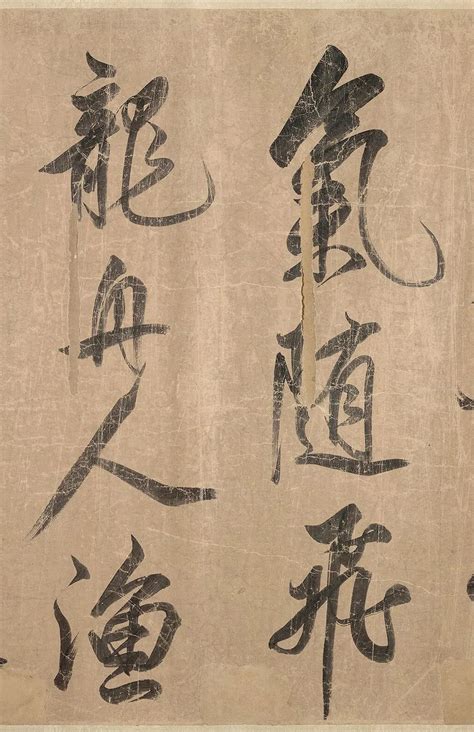 氣随飛
龍舟人漁